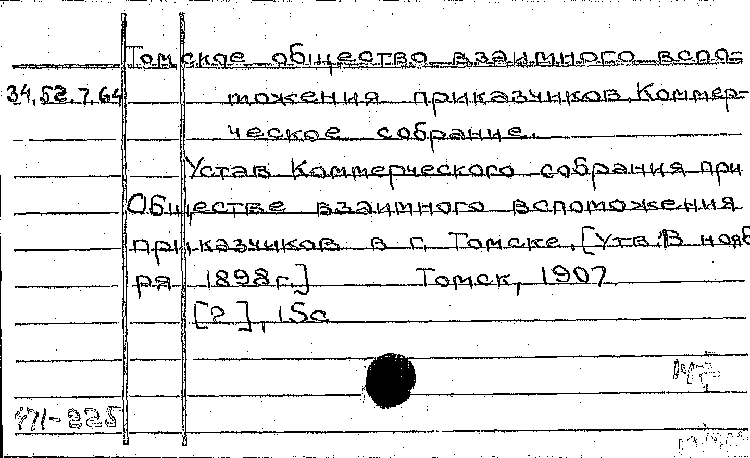 Томское общество взаимного вспо-
34.52.7.64 можения приказчиков. Коммер-
ческое собрание.
Устав Коммерческого собрания при
Обществе взаимного вспоможения
приказчиков в г. Томске. [Утв. 18 нояб
ря 1898г.] Томск, 1907
[2], 15с
471-225